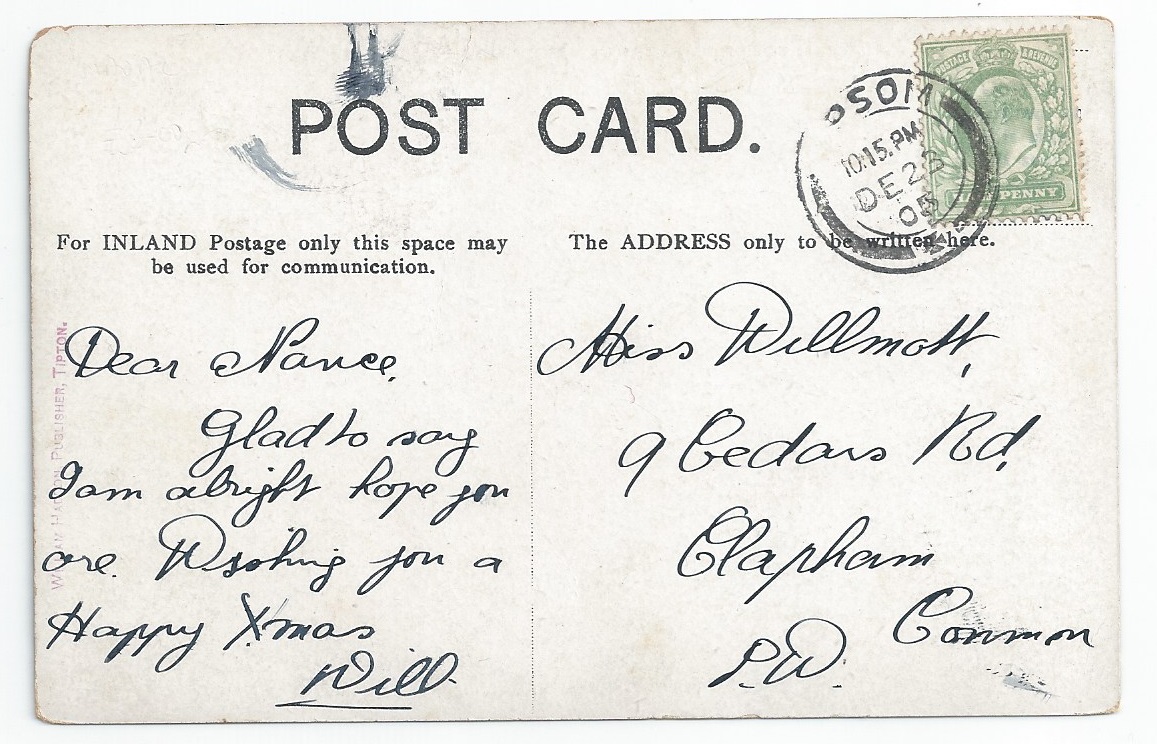 POST CARD.
POSTAGE & REVENUE
PSOM
10.15.PM
DE 23
05
PENNY
For INLAND Postage only this space may
be used for communication.
The ADDRESS only to be written here.
Dear Nance,
Glad to say
I am alright hope you
are. Wishing you a
Happy Xmas
Will.
Miss Willmott,
9 Cedars Rd,
Clapham
Common
S.W.
PUBLISHER, TIPTON.